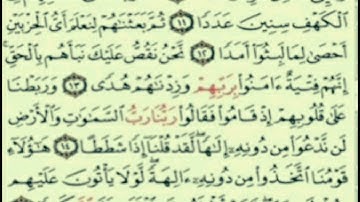 الْكَهْفِ سِنِينَ عَدَدًا ۝١١ ثُمَّ بَعَثْنَاهُمْ لِنَعْلَمَ أَيُّ الْحِزْبَيْنِ
أَحْصَىٰ لِمَا لَبِثُوا أَمَدًا ۝١٢ نَحْنُ نَقُصُّ عَلَيْكَ نَبَأَهُم بِالْحَقِّ ۚ
إِنَّهُمْ فِتْيَةٌ ءَامَنُوا بِرَبِّهِمْ وَزِدْنَاهُمْ هُدًى ۝١٣ وَرَبَطْنَا
عَلَىٰ قُلُوبِهِمْ إِذْ قَامُوا فَقَالُوا رَبُّنَا رَبُّ السَّمَاوَاتِ وَالْأَرْضِ
لَن نَّدْعُوَا مِن دُونِهِ إِلَٰهًا ۖ لَّقَدْ قُلْنَا إِذًا شَطَطًا ۝١٤ هَٰؤُلَاءِ
قَوْمُنَا اتَّخَذُوا مِن دُونِهِ ءَالِهَةً ۖ لَّوْلَا يَأْتُونَ عَلَيْهِم